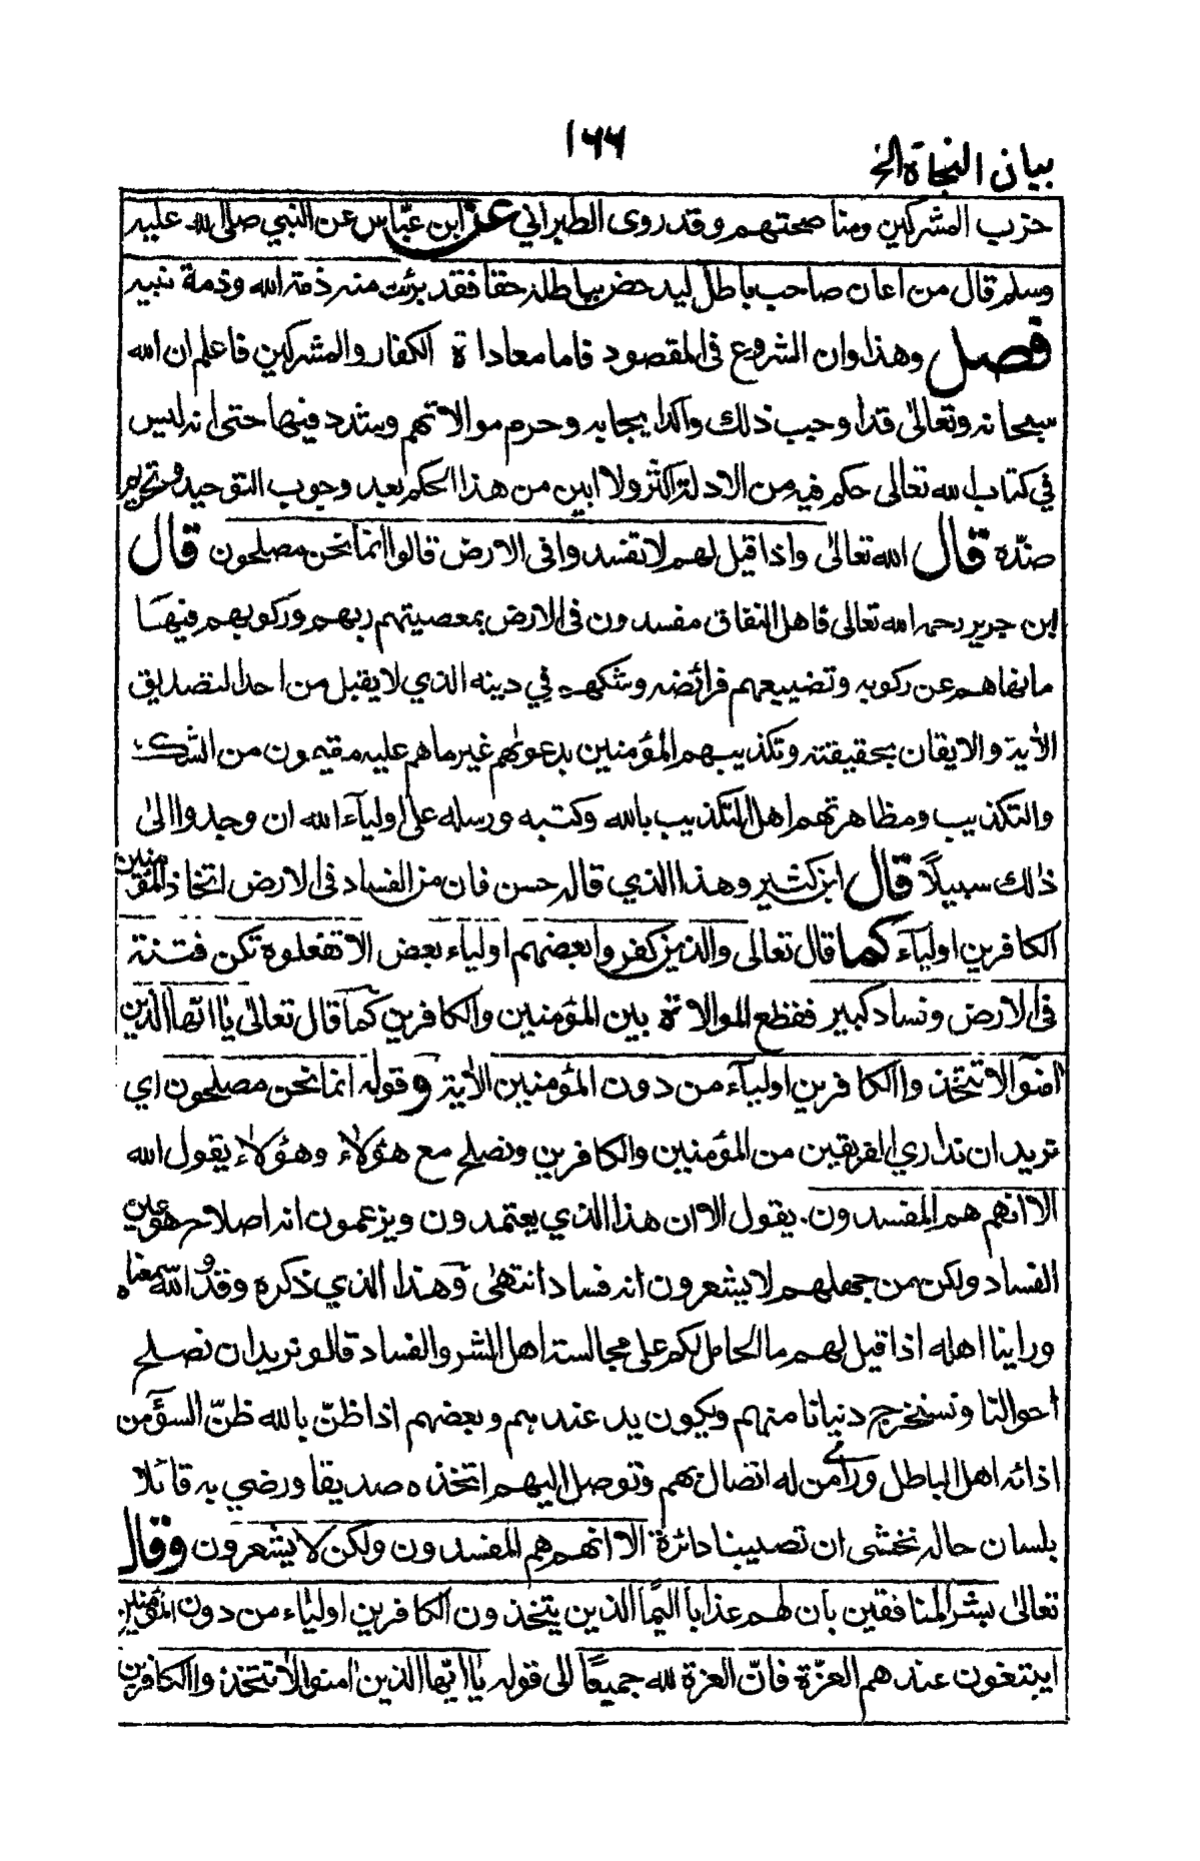 ١٦٦
بيان النجاة الخ
حزب المشركين ومناصحتهم وقد روى الطبراني عن ابن عبّاس عن النبي صلى الله عليه
وسلم قال من اعان صاحب باطل ليدحض بباطله حقا فقد برئت منه ذمة الله وذمة نبيه
فصل وهذا وان الشروع فى المقصود فاما معاداة الكفار والمشركين فاعلم ان الله
سبحانه وتعالىٰ قد اوجب ذلك واكد ايجابه وحرم موالاتهم وشدد فيها حتى انه ليس
في كتاب الله تعالى حكم فيه من الادلة اكثر ولا ابين من هذا الحكم بعد وجوب التوحيد وتحريم
ضدّه قال الله تعالىٰ واذا قيل لهم لا تفسدوا فى الارض قالوا انما نحن مصلحون قال
ابن جرير رحمه الله تعالى فاهل النفاق مفسدون فى الارض بمعصيتهم ربهم وركوبهم فيها
ما نهاهم عن ركوبه وتضييعهم فرائضه وشكهم في دينه الذي لا يقبل من احد التصديق
الأية والايقان بحقيقته وتكذيبهم المؤمنين بدعوٰهم غير ما هم عليه مقيمون من الشك
والتكذيب ومظاهرتهم اهل التكذيب بالله وكتبه ورسله على اولياء الله ان وجدوا الىٰ
ذلك سبيلاً قال ابن كثير وهذا الذي قاله حسن فان من الفساد فى الارض اتخاذ المؤمنين
الكافرين اولياء كما قال تعالى والذين كفروا بعضهم اولياء بعض الا تفعلوه تكن فتنة
فى الارض وفساد كبير فقطع الموالاة بين المؤمنين والكافرين كما قال تعالىٰ ياايّها الذين
امنوا لا تتخذوا الكافرين اولياء من دون المؤمنين الأية وقوله انما نحن مصلحون اي
نريد ان نداري الفريقين من المؤمنين والكافرين ونصلح مع هؤلاء وهؤلاء يقول الله
الا انهم هم المفسدون. يقول الا ان هذا الذي يعتمدون ويزعمون انه اصلاح هو عين
الفساد ولكن من جهلهم لا يشعرون انه فساد انتهىٰ وهذا الذي ذكره وقد والله سمعناه
وراينا اهله اذا قيل لهم ما الحامل لكم على مجالسة اهل الشر والفساد قالوا نريد ان نصلح
احوالنا ونستخرج دنيانا منهم ويكون يد عندهم وبعضهم اذا ظنّ بالله ظنّ السوٓء من
اذائه اهل الباطل وراى من له اتصال بهم وتوصل اليهم اتخذه صديقا ورضي به قائلا
بلسان حاله نخشى ان تصيبنا دائرة الا انهم هم المفسدون ولكن لا يشعرون وقال
تعالىٰ بشر المنافقين بان لهم عذابا اليمًا الذين يتخذون الكافرين اولياء من دون المؤمنين
ايبتغون عندهم العزّة فانّ العزة لله جميعًا الى قوله ياايّها الذين امنوا لا تتخذوا الكافرين